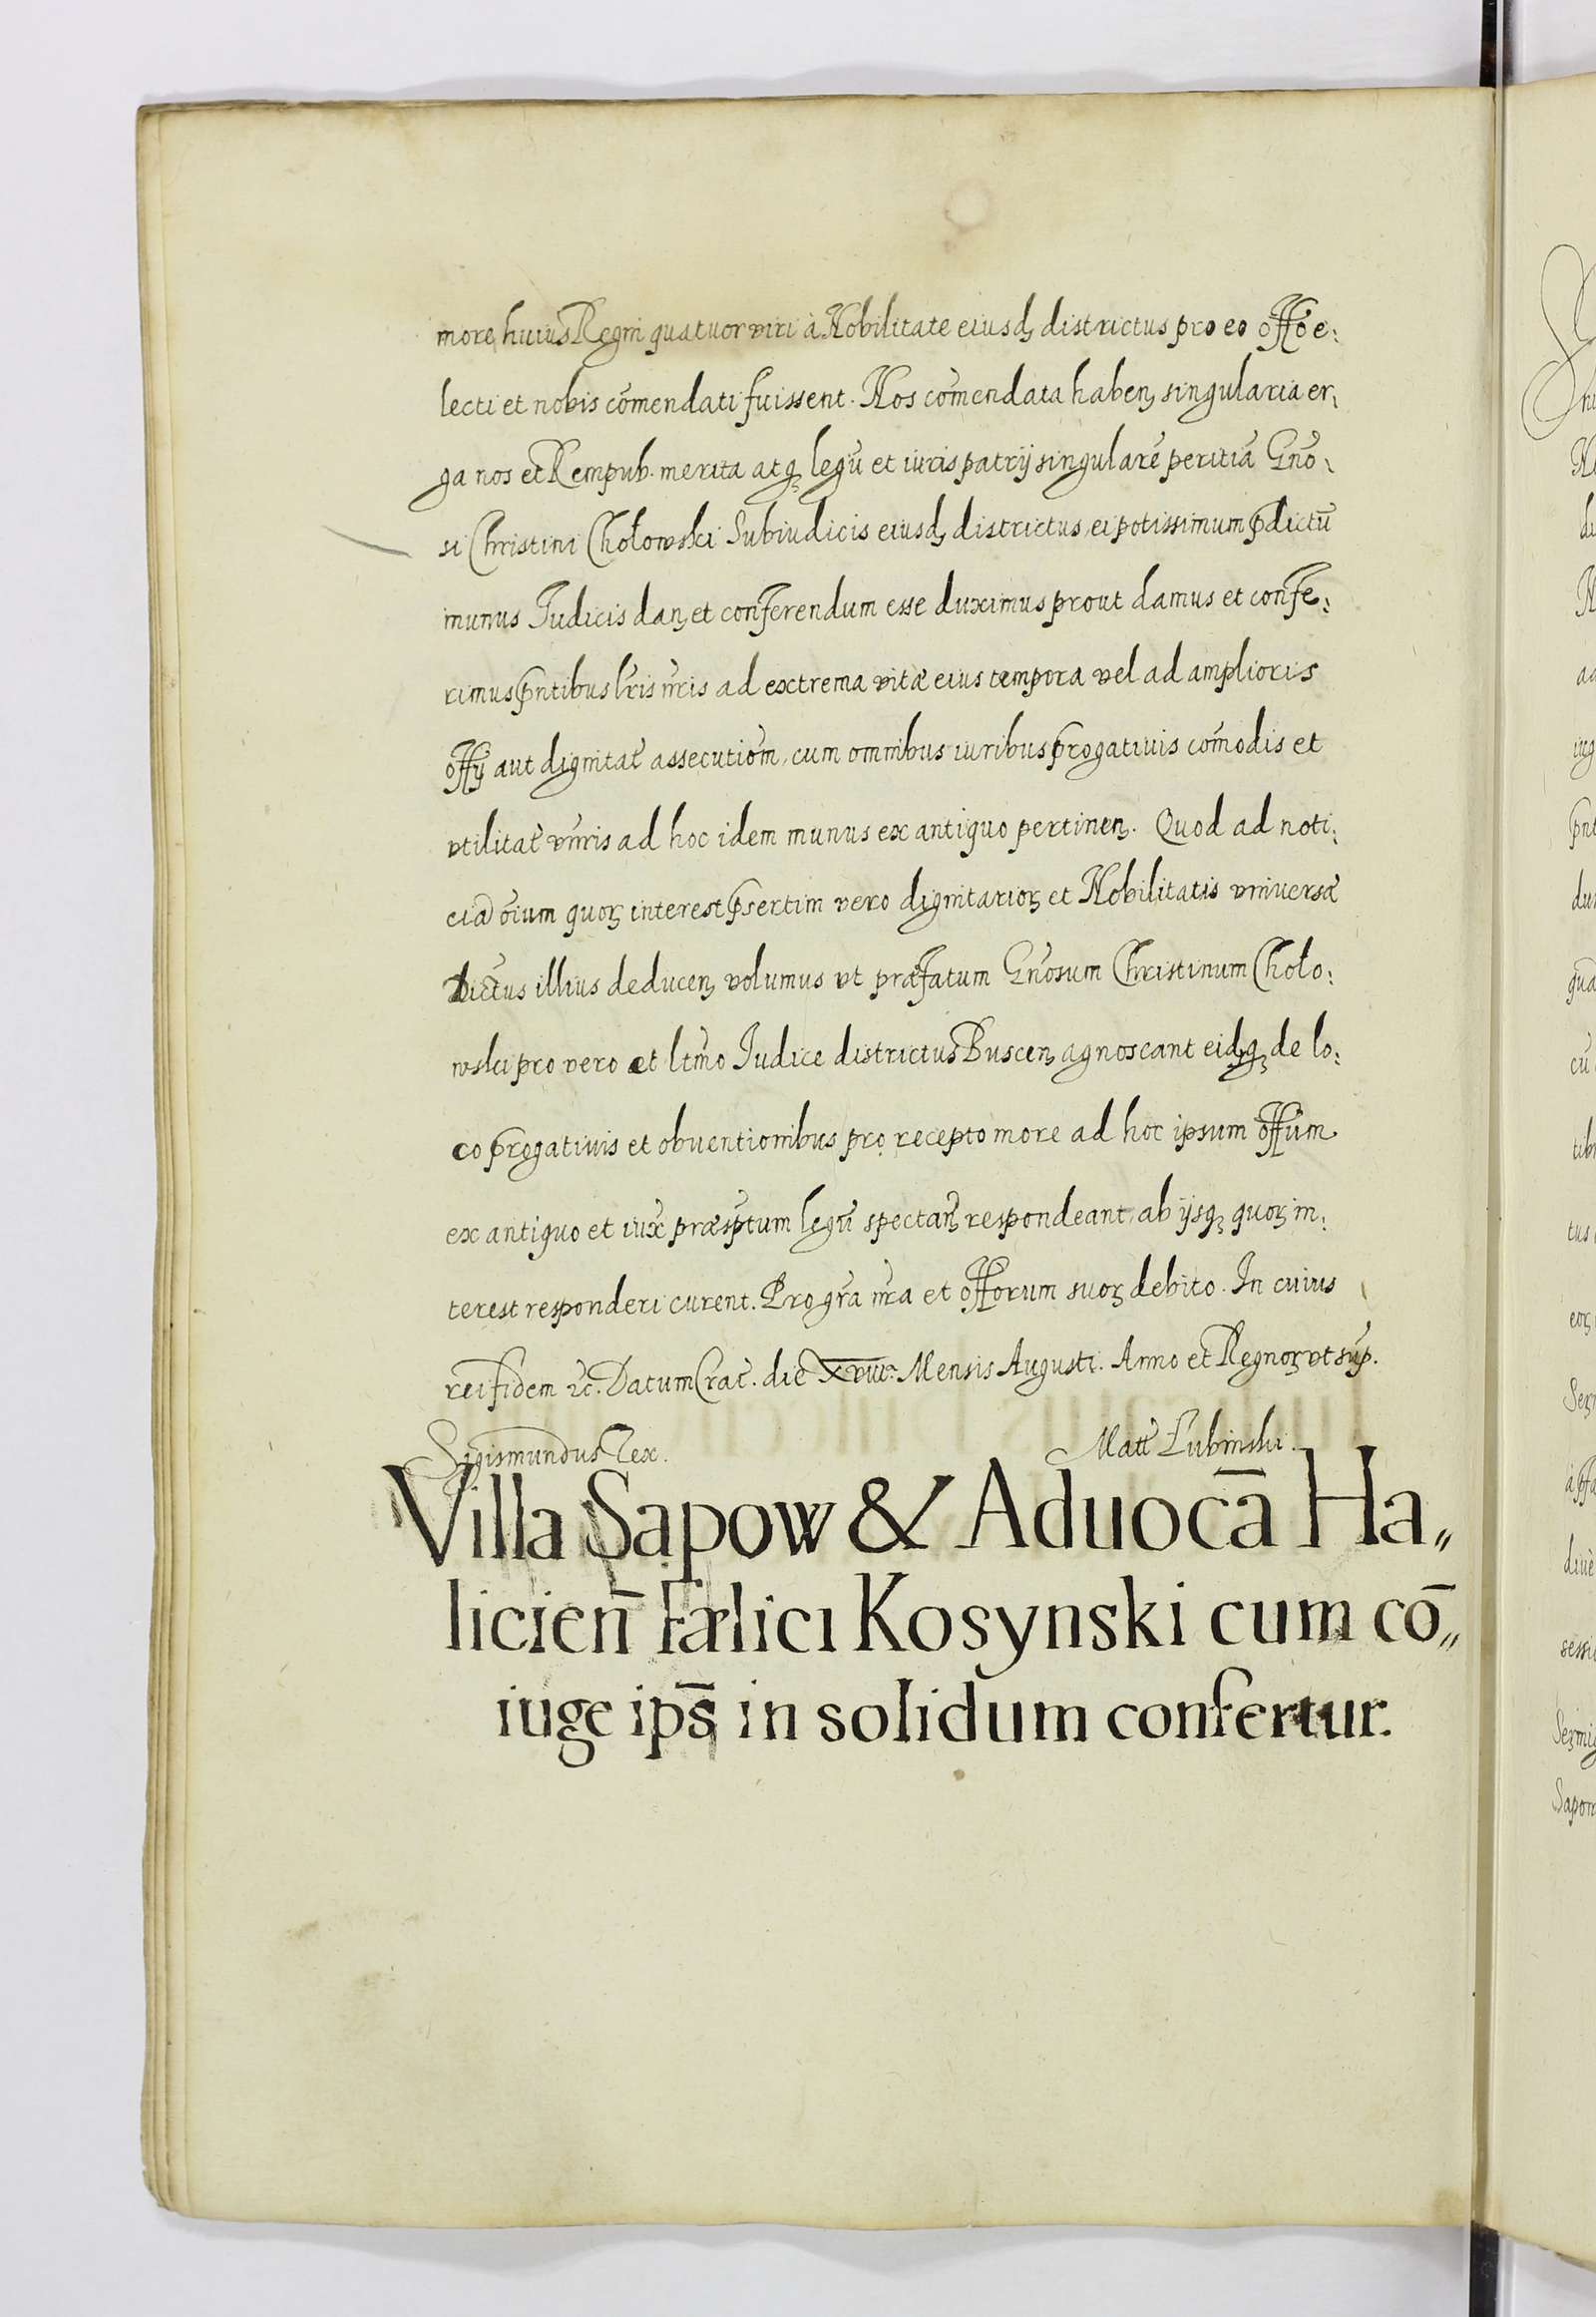 more huius Regni quatuor viri à Nobilitate eiusd, districtus pro eo offo e:
lecti et nobis com̃endati fuissent. Nos com̃endata haben, singularia er,
ga nos et Rempub. merita atq, legũ et iuris patrij singularẽ peritiã Gño,
si Christini Chołowski Subiudicis eiusd, districtus, ei potissimum pdictũ
munus Judicis dan, et conferendum esse duximus prout damus et confe:
rimus pñtibus lr̃is nr̃is ad extrema vitæ eius tempora vel ad amplioris
offij aut dignitat̃ assecutiom̃, cum omnibus iuribus progativis com̃odis et
vtilitat̃ vnĩris ad hoc idem munus ex antiquo pertinen,. Quod ad noti:
ciã oĩum quoꝝ interest psertim vero dignitarioꝝ et Nobilitatis vniversæ
Dictũs illius deducen, volumus vt præfatum Gñosum Christinum Choło:
wski pro vero et ltm̃o Judice districtus Buscen, agnoscant eidq, de lo:
co progativis et obventionibus pro recepto more ad hoc ipsum offũm
ex antiquo et iux̃ præsp̃tum legũ spectañ, respondeant, ab ijsq, quoꝝ in:
terest responderi curent. Pro gr̃a nr̃a et offorum suoꝝ debito. In cuius
rei fidem ꝛc. Datum Crac̃. die XVIII. Mensis Augusti. Anno et Regnoꝝ vt sup̃.
Sigismundus Rex. Matt̃ Łubinski.
Villa Sapow & Aduocã Ha„
licień Fælici Kosynski cum cõ„
iuge ips̃ in solidum confertur.